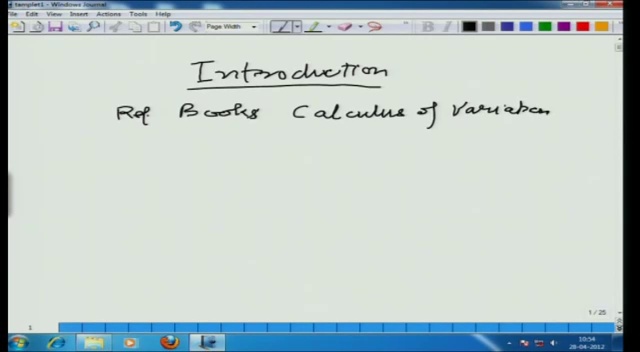 templet1 - Windows Journal
File Edit View Insert Actions Tools Help
Page Width
Introduction
Ref. Books Calculus of Variation
1 / 25
1
10:54
28-04-2012